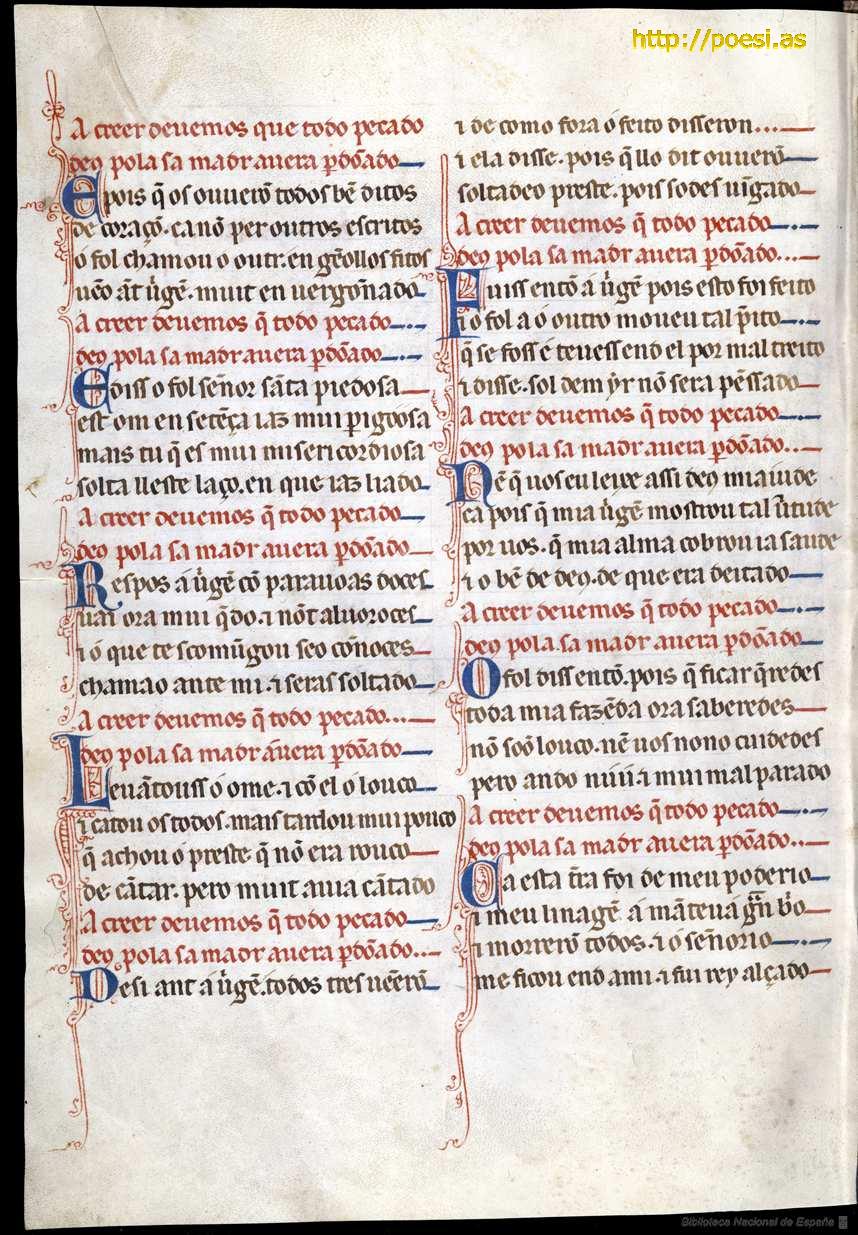 http://poesi.as
A creer deuemos que todo pecado
deꝯ pola sa madr auera ꝑdõado
E pois q̃ os ouuerõ todos bẽ ditos
de coraçõ. ca nõ per outros escritos
o fol chamou o outr. en gẽollos fitos
uẽo ãt ũgẽ. muit en uergõnado
A creer deuemos q̃ todo pecado
deꝯ pola sa madr auera ꝑdõado
E diss o fol señor sãta piedosa
est om en setẽça iaz mui ꝑigoosa
mais tu q̃ es mui misericordiosa
solta lleste laço. en que iaz liado
A creer deuemos q̃ todo pecado
deꝯ pola sa madr auera ꝑdõado
Respos á ũgẽ cõ parauoas doces
uai ora mui q̃do. ⁊ nõt aluoroces
⁊ ó que te scomũgou seo cõnoces
chamao ante mi. ⁊ seras soltado
A creer deuemos q̃ todo pecado...
deꝯ pola sa madr auera ꝑdõado
Leuãtouss ó ome. ⁊ cõ el ó louco
⁊ catou os todos. mais tardou mui pouco
q̃ achou ó preste q̃ nõ era rouco
de cãtar. pero muit auia cãtado
A creer deuemos q̃ todo pecado
deꝯ pola sa madr auera ꝑdõado...
Desi ant á ũgẽ. todos tres uẽerõ
⁊ de como fora ó feito disseron...
⁊ ela disse. pois q̃ llo dit ouuerõ
solta deo preste. pois sodes uĩgado
A creer deuemos q̃ todo pecado
deꝯ pola sa madr auera ꝑdõado...
Fuiss entõ á ũgẽ pois esto foi feito
⁊ o fol a ó outro moueu tal p̃ito
q̃ se foss é teuessend el por mal treito
⁊ disse. sol dem ẏr nõ sera pẽssado
A creer deuemos q̃ todo pecado
deꝯ pola sa madr auera ꝑdõado...
Nẽ q̃ uos eu leixe assi deꝯ mi aiude
ca pois q̃ mia ũgẽ mostrou tal ũtude
por uos. q̃ mia alma cobrou ia saude
⁊ o bẽ de deꝯ. de que era deitado
A creer deuemos q̃ todo pecado
deꝯ pola. sa madr auera ꝑdõado
O fol diss entõ. pois q̃ ficar q̃redes
toda mia fazẽda ora saberedes
nõ soõ louco. nẽ uos nono cuidedes
pero ando nuũ ⁊ mui mal parado
A creer deuemos q̃ todo pecado
deꝯ pola sa madr auera ꝑdõado..
Ca esta t̃ra foi de meu poderio
⁊ meu linagẽ á mãteuá g̃n b̃o
⁊ morrerõ todos. ⁊ ó señorio
me ficou end a mi ⁊ fui rey alçado
Biblioteca Nacional de España